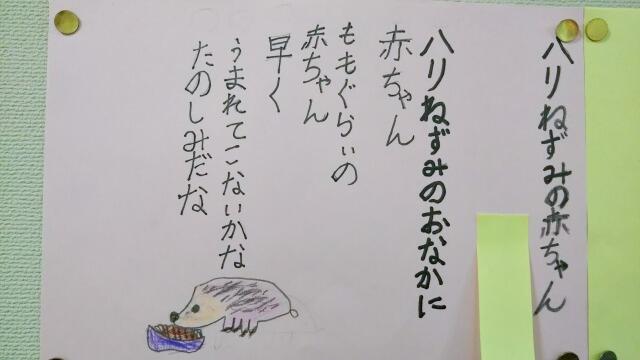 ハリねずみの赤ちゃん
ハリねずみのおなかに
赤ちゃん
ももぐらいの
赤ちゃん
早く
うまれてこないかな
たのしみだな